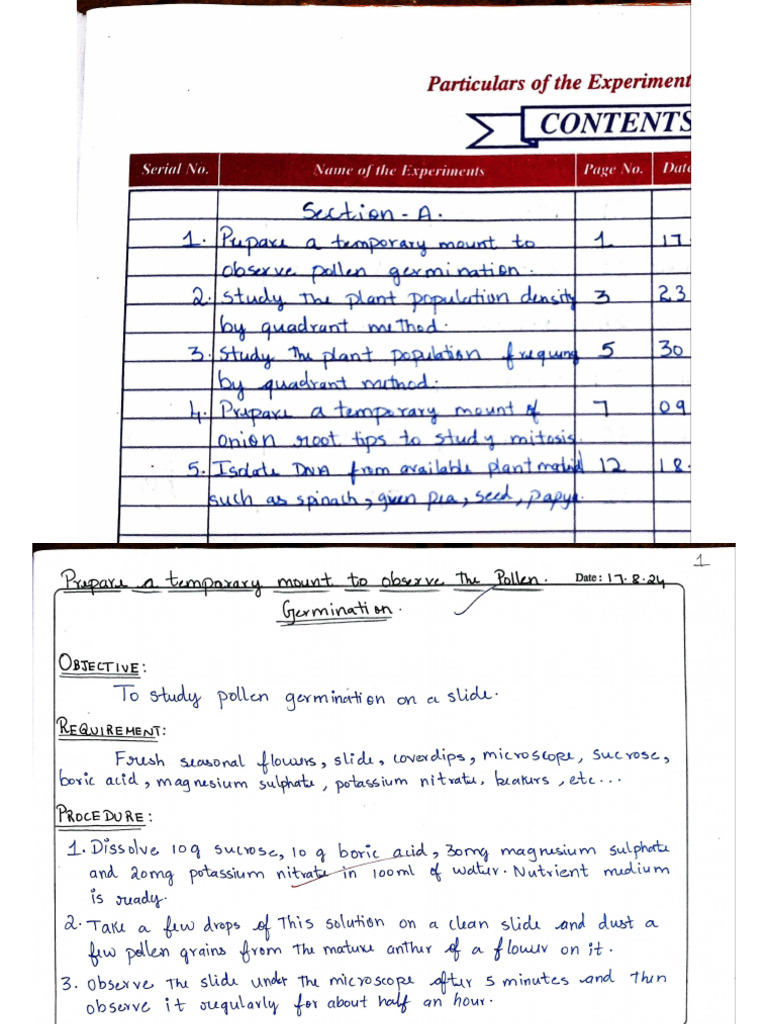 Particulars of the Experiment
CONTENTS
Serial No. Name of the Experiments Page No. Date
Section - A.
1. Prepare a temporary mount to 1 17.
observe pollen germination.
2. Study the plant population density 3 23
by quadrant method.
3. Study the plant population 5 30
by quadrant method.
4. Prepare a temporary mount of 7 09
onion root tips to study mitosis.
5. Isolate DNA from available plant 12 18.
such as spinach, green pea, seed,
1
Prepare a temporary mount to observe the Pollen. Date: 17.8.24
Germination.
OBJECTIVE:
To study pollen germination on a slide.
REQUIREMENT:
Fresh seasonal flowers, slide, coverslips, microscope, sucrose,
boric acid, magnesium sulphate, potassium nitrate, beakers, etc...
PROCEDURE:
1. Dissolve 10g sucrose, 10 g boric acid, 30mg magnesium sulphate
and 20mg potassium nitrate in 100ml of water. Nutrient medium
is ready.
2. Take a few drops of this solution on a clean slide and dust a
few pollen grains from the mature anther of a flower on it.
3. Observe the slide under the microscope after 5 minutes and then
observe it regularly for about half an hour.